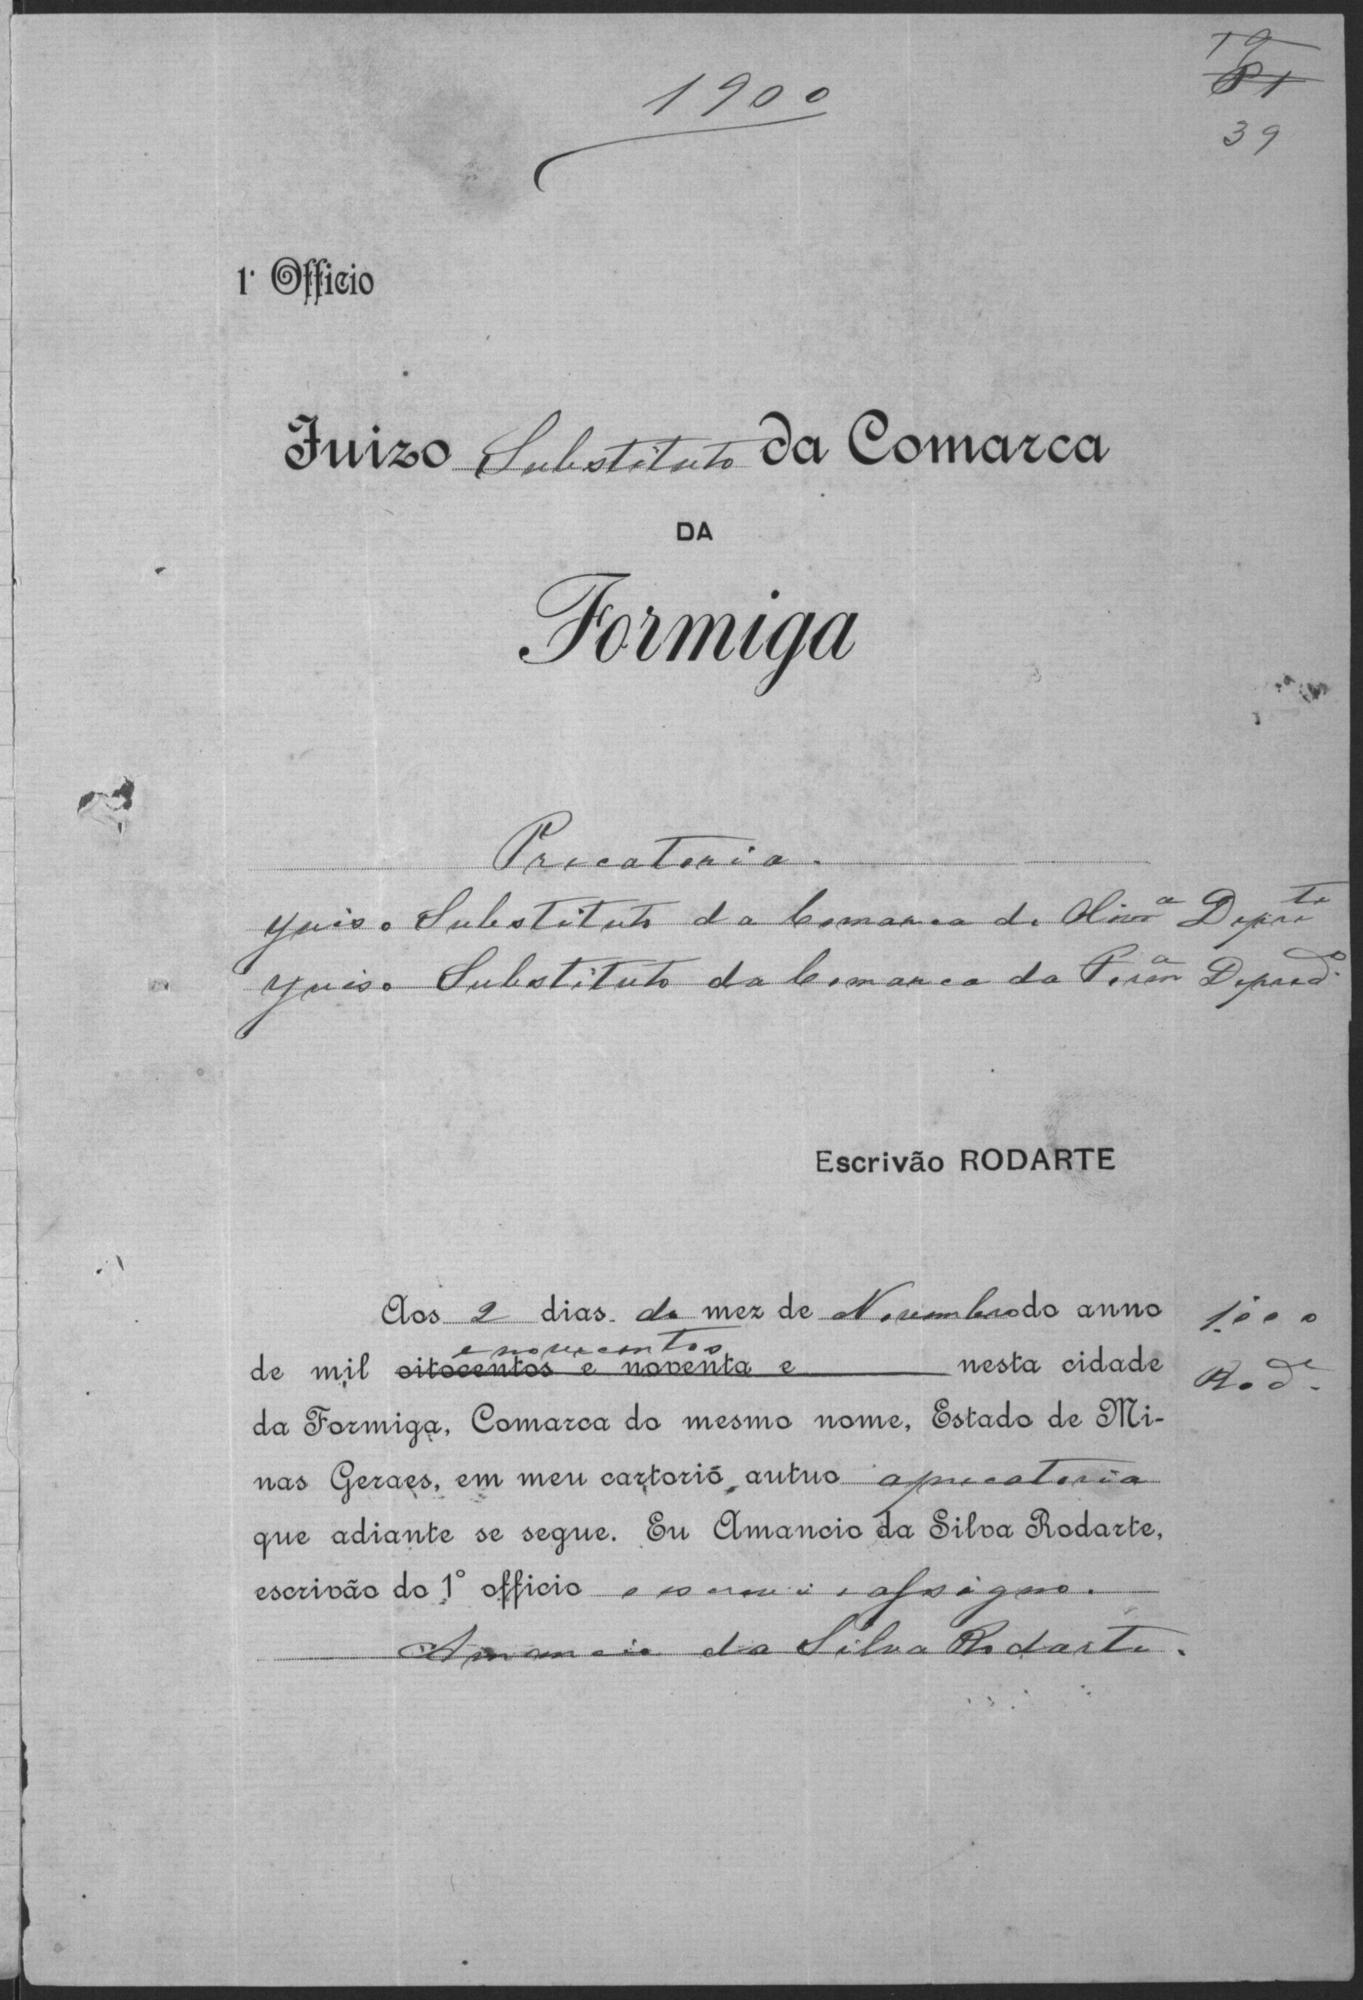 1900
19
39
1º Officio
Juizo Substituto da Comarca
DA
Formiga
Precatoria.
Juiso Substituto da Comarca de Olivrª Deprte
Juiso Substituto da Comarca da Formª Deprecdº.
Escrivão RODARTE
Aos 2 dias do mez de Novembro do anno
e novecentos
de mil oitocentos e noventa e nesta cidade
1.000
Rode.
da Formiga, Comarca do mesmo nome, Estado de Mi-
nas Geraes, em meu cartorio, autuo a precatoria
que adiante se segue. Eu Amancio da Silva Rodarte,
escrivão do 1º officio escrevi e assigno.
Amancio da Silva Rodarte.